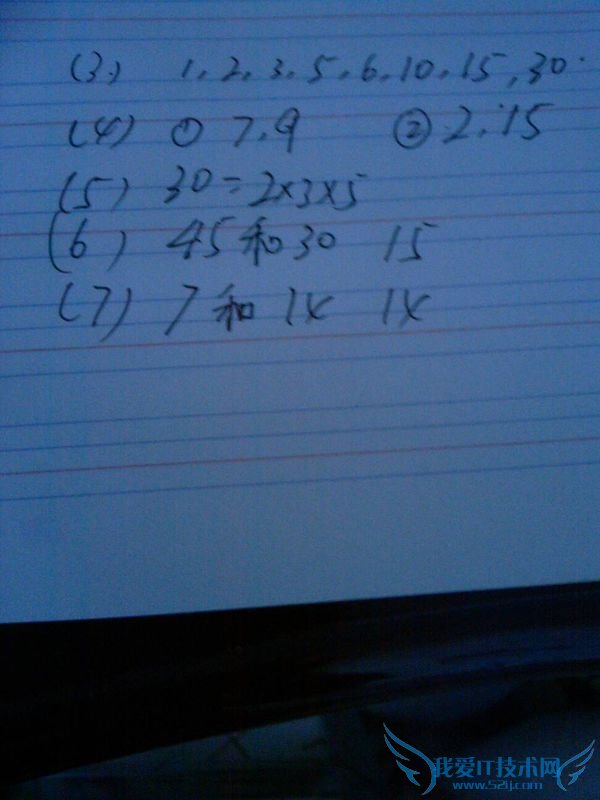 (3) 1.2.3.5.6.10.15.30.
(4) ① 7.9 ② 2.15
(5) 30=2×3×5
(6) 45和30 15
(7) 7和14 14
我爱IT技术网
www.52ij.com